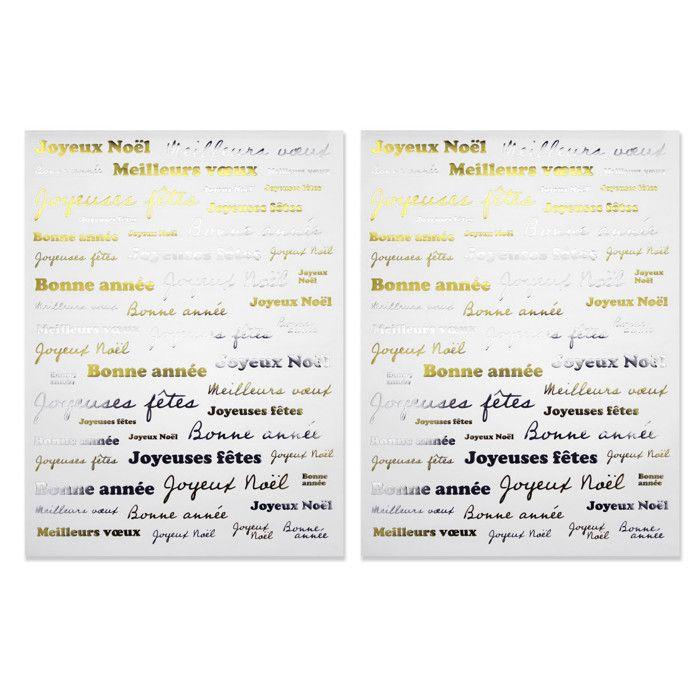 Joyeux Noël Meilleurs vœux
Bonne année Meilleurs vœux Meilleurs vœux
Joyeuses fêtes Joyeux Noël Joyeuses fêtes
Joyeuses fêtes Joyeuses fêtes
Bonne année Joyeux Noël Bonne année
Joyeuses fêtes Joyeuses fêtes Joyeux Noël
Bonne année Joyeux Noël Joyeux Noël
Meilleurs vœux Bonne année Joyeux Noël
Meilleurs vœux Joyeuses fêtes Bonne année
Joyeux Noël Joyeux Noël
Bonne année Bonne année Meilleurs vœux
Joyeuses fêtes Joyeuses fêtes Joyeuses fêtes
Bonne année Joyeux Noël Bonne année
Joyeuses fêtes Joyeuses fêtes Joyeux Noël
Bonne année Joyeux Noël Bonne année
Meilleurs vœux Bonne année Joyeux Noël
Meilleurs vœux Joyeuses fêtes Joyeux Noël Bonne année
Joyeux Noël Meilleurs vœux
Bonne année Meilleurs vœux Meilleurs vœux
Joyeuses fêtes Joyeux Noël Joyeuses fêtes
Joyeuses fêtes Joyeuses fêtes
Bonne année Joyeux Noël Bonne année
Joyeuses fêtes Joyeuses fêtes Joyeux Noël
Bonne année Joyeux Noël Joyeux Noël
Meilleurs vœux Bonne année Joyeux Noël
Meilleurs vœux Joyeuses fêtes Bonne année
Joyeux Noël Joyeux Noël
Bonne année Bonne année Meilleurs vœux
Joyeuses fêtes Joyeuses fêtes Joyeuses fêtes
Bonne année Joyeux Noël Bonne année
Joyeuses fêtes Joyeuses fêtes Joyeux Noël
Bonne année Joyeux Noël Bonne année
Meilleurs vœux Bonne année Joyeux Noël
Meilleurs vœux Joyeuses fêtes Joyeux Noël Bonne année